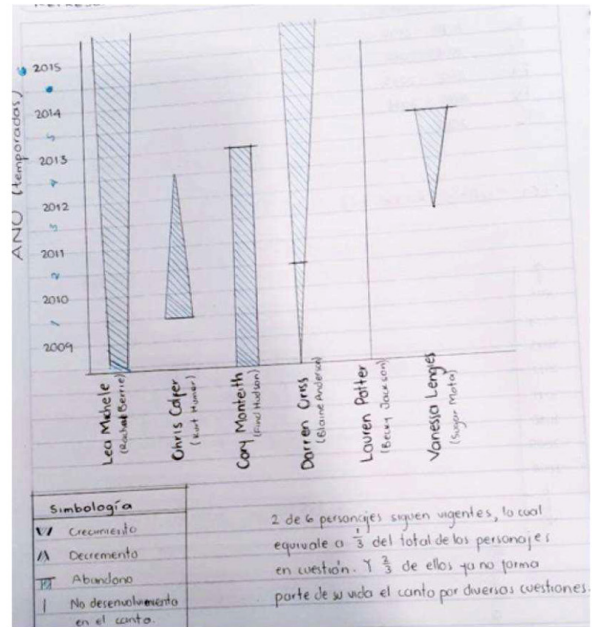 AÑO (temporadas)
2015
6
2014
5
2013
4
2012
3
2011
2
2010
1
2009
Lea Michele
(Rachel Berrie)
Chris Colfer
(Kurt Humer)
Cory Monteith
(Finn Hudson)
Darren Criss
(Blaine Anderson)
Lauren Potter
(Becky Jackson)
Vanessa Lengies
(Sugar Mota)
Simbología
Crecimiento
Decremento
Abandono
No desenvolvimiento
en el canto.
2 de 6 personajes siguen vigentes, lo cual
equivale a 1/3 del total de los personajes
en cuestión. Y 2/3 de ellos ya no forma
parte de su vida el canto por diversas cuestiones.